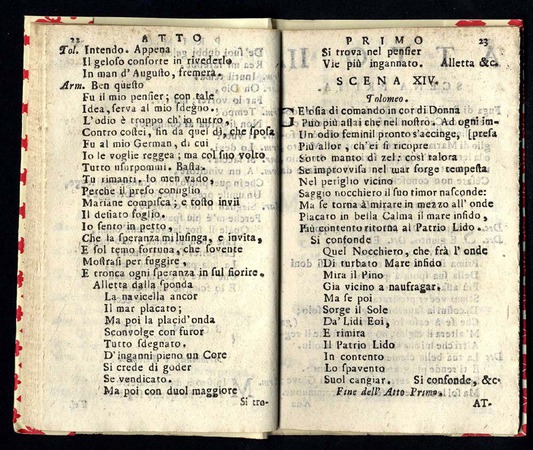 22 ATTO
Tol. Intendo. Appena
Il geloso consorte in rivederlo
In man d'Augusto, fremerà.
Arm. Ben questo
Fu il mio pensier; con tale
Idea, serva al mio sdegno,
L'odio è troppo ch'io nutro,
Contro costei, fin da quel dì, che sposa
Fu al mio German, di cui
Io le voglie reggea; ma col suo volto
Tutto usurpommi. Basta.
Tu rimanti. Io men vado,
Perche il preso consiglio
Mariane compisca; e tosto invii
Il desiato foglio.
Io sento in petto,
Che la speranza mi lusinga, e invita,
E sol temo fortuna, che sovente
Mostrasi per fuggire,
E tronca ogni speranza in sul fiorire.
Alletta dalla sponda
La navicella ancor
Il mar placato;
Ma poi la placid'onda
Sconvolge con furor
Tutto sdegnato.
D'inganni pieno un Core
Si crede di goder
Se vendicato.
Ma poi con duol maggiore
Si tro-
PRIMO 23
Si trova nel pensier
Vie più ingannato. Alletta &c.
SCENA XIV.
Tolomeo.
Gelosia di comando in cor di Donna
Può più assai che nel nostro. Ad ogni im-
Un odio feminil pronto s'accinge, [presa
Più allor, ch'ei si ricopre
Sotto manto di zel: così talora
Se improvvisa nel mar sorge tempesta
Nel periglio vicino
Saggio nocchiero il suo timor nasconde:
Ma se torna à mirare in mezzo all' onde
Placato in bella Calma il mare infido,
Più contento ritorna al Patrio Lido.
Si confonde
Quel Nocchiero, che frà l' onde
Di turbato Mare infido
Mira il Pino
Gia vicino a naufragar.
Ma se poi
Sorge il Sole
Da' Lidi Eoi,
E rimira
Il Patrio Lido
In contento
Lo spavento
Suol cangiar. Si confonde, &c.
Fine dell' Atto Primo.
AT-